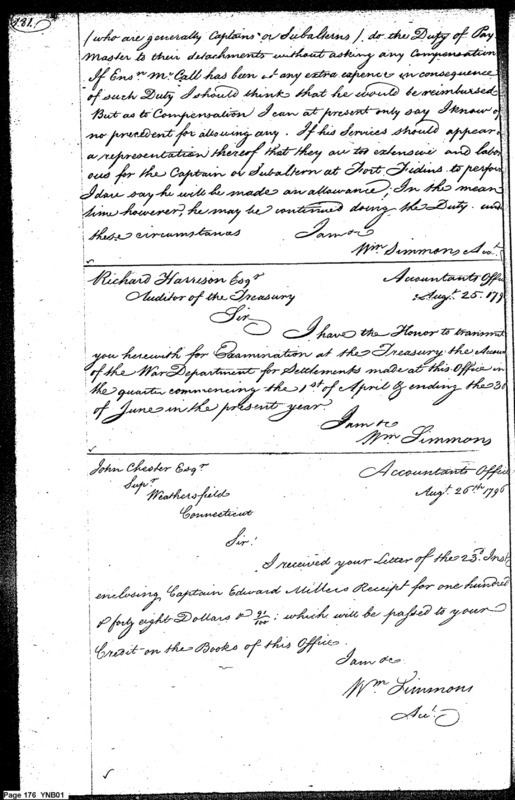 181.
(who are generally Captains or Subalterns), do the Duty of Pay
Master to their detachments without asking any Compensation
If Ensn McCall has been at any extra expence in consequence
of such Duty I should think that he should be reimbursed
But as to Compensation I can at present only say I know of
no precedent for allowing any. If his Services should appear
a representation thereof that they are to extensive and labor
ous for the Captain or Subaltern at Fort Fidius to perform
I dare say he will be made an allowance, In the mean
time however, he may be continued doing the Duty. und
these circumstances I am &c
Wm. Simmons Acct.
Richard Harrison Esqr Accountants Office
Auditor of the Treasury Augt. 25. 179
Sir
I have the Honor to transmit
you herewith for Examination at the Treasury the Accou
of the War Department for Settlements made at this Office in
the quarter commencing the 1st of April & ending the 30
of June in the present year.
I am &c
Wm Simmons
John Chester Esqr Accountants Office
Supr. Augt. 26th 1796
Weathersfield
Connecticut
Sir!
I received your Letter of the 23d. Inst
enclosing Captain Edward Millers Receipt for one hundred
& forty eight Dollars & 91/100; which will be passed to your
Credit on the Books of this Office.
I am &c
Wm Simmons
Acct.
Page 176 YNB01